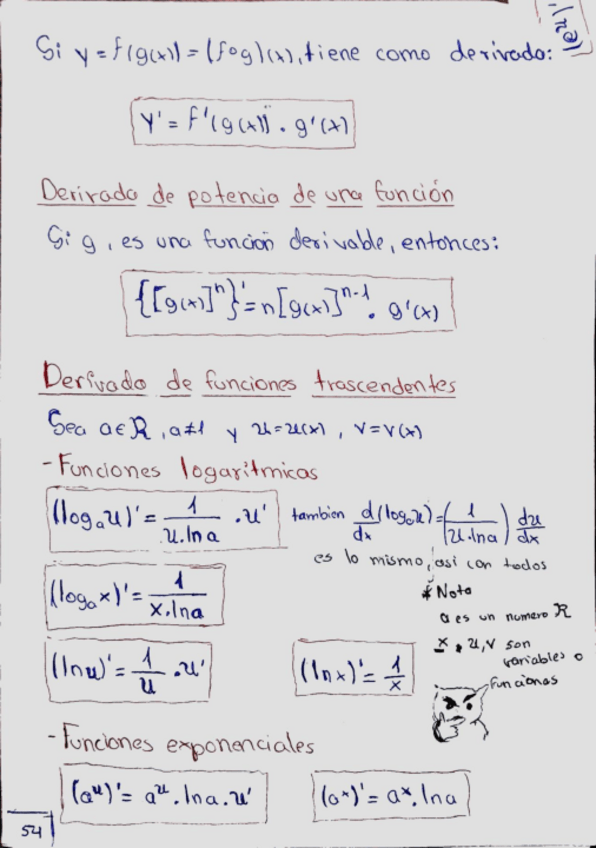 Si y = f(g(x)) = (f∘g)(x), tiene como derivada:
y' = f'(g(x)) . g'(x)
Derivada de potencia de una función
Si g, es una función derivable, entonces:
{[g(x)]^n}' = n[g(x)]^n-1 . g'(x)
Derivada de funciones trascendentes
Sea a∈ℝ, a≠1 y u=u(x), v=v(x)
- Funciones logarítmicas
(log_a u)' = 1/(u.ln a) .u' tambien d/dx (log_a u) = (1/(u.ln a)) du/dx
es lo mismo, así con todos
(log_a x)' = 1/(x.ln a)
* Nota
a es un numero ℝ
x , u, v son
variables o
funciones
(ln u)' = 1/u .u' (ln x)' = 1/x
- Funciones exponenciales
(a^u)' = a^u . ln a . u' (a^x)' = a^x . ln a
54